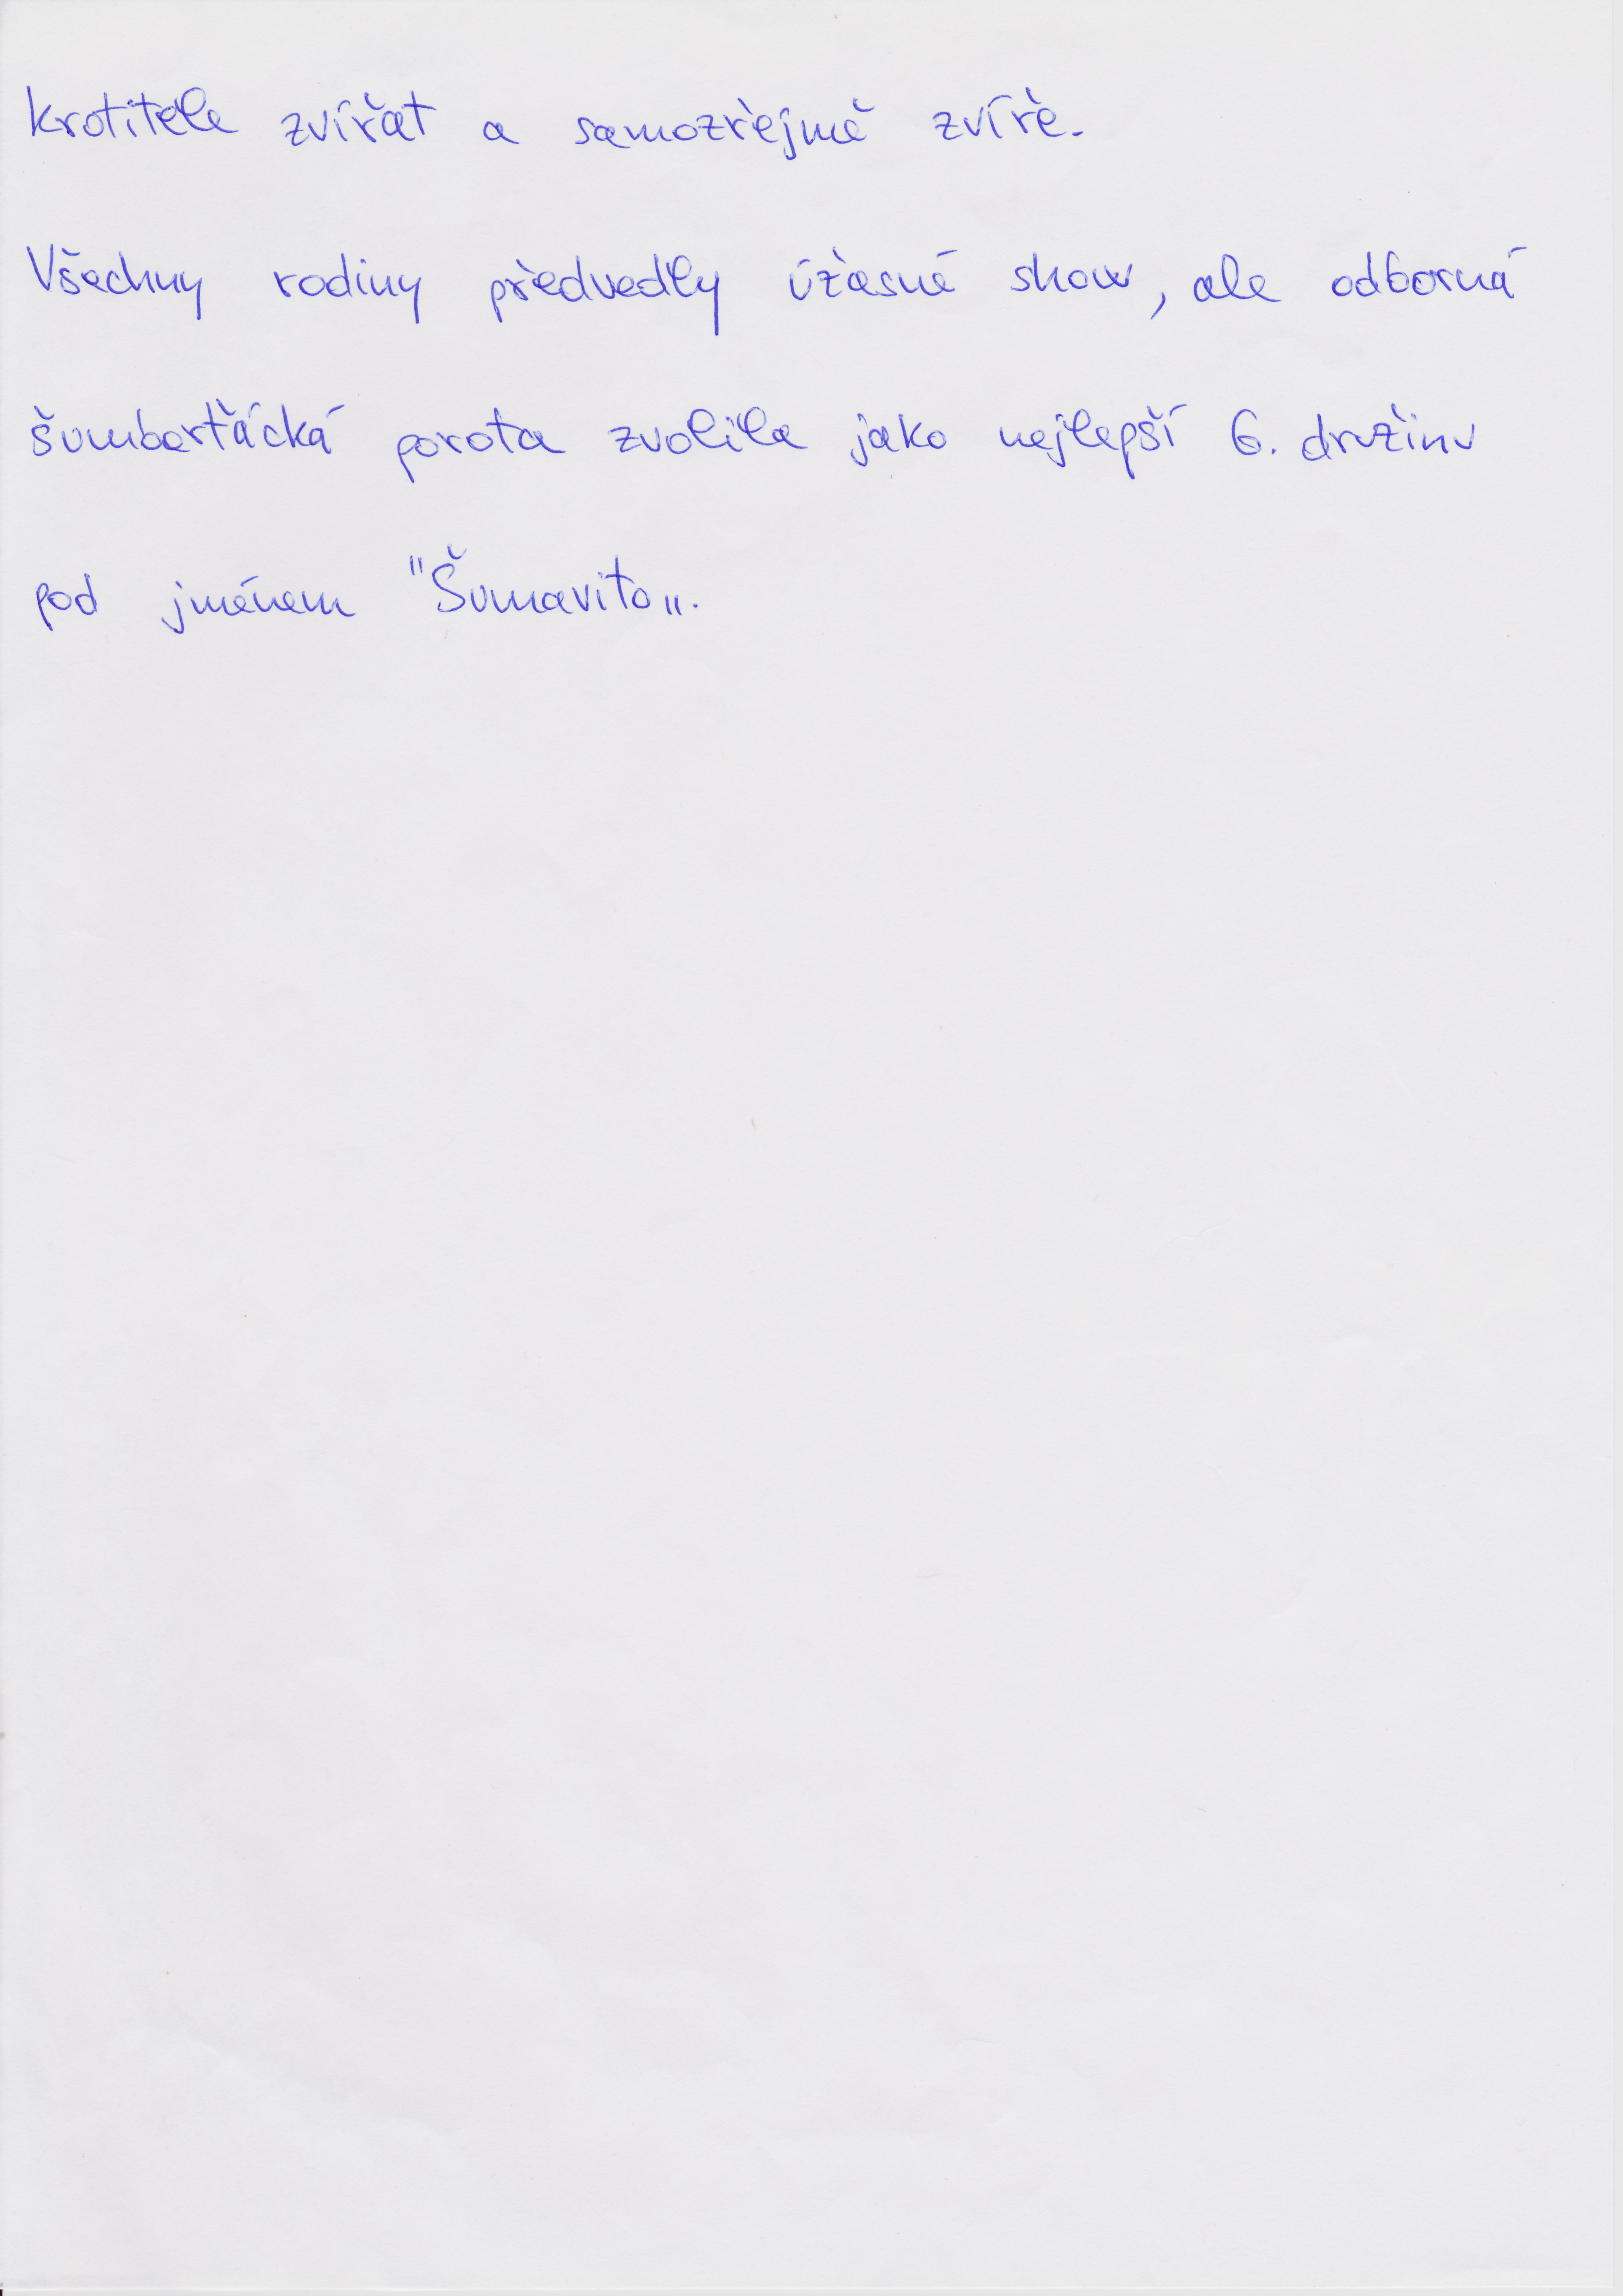 krotitele zvířat a samozřejmě zvíře.
Všechny rodiny předvedly úžasné show, ale odborná
šumbarťácká porota zvolila jako nejlepší 6. družinu
pod jménem "Šumavito„.